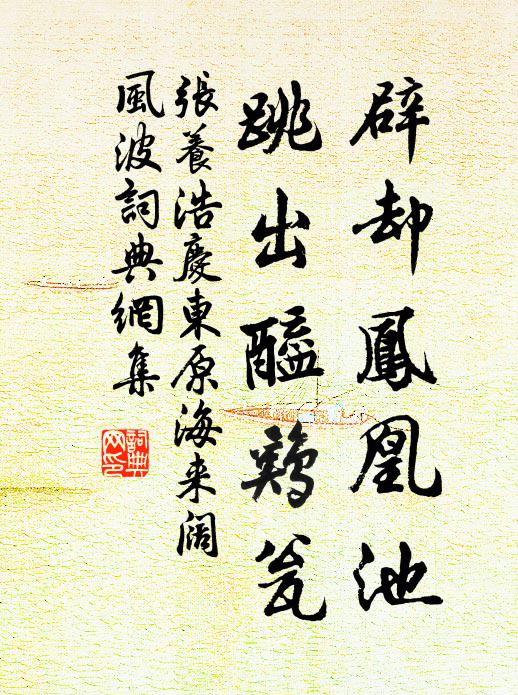 辟却鳳凰池
跳出醯鷄瓮
張養浩慶東原海来阔
風波詞典網集
詞典
网印